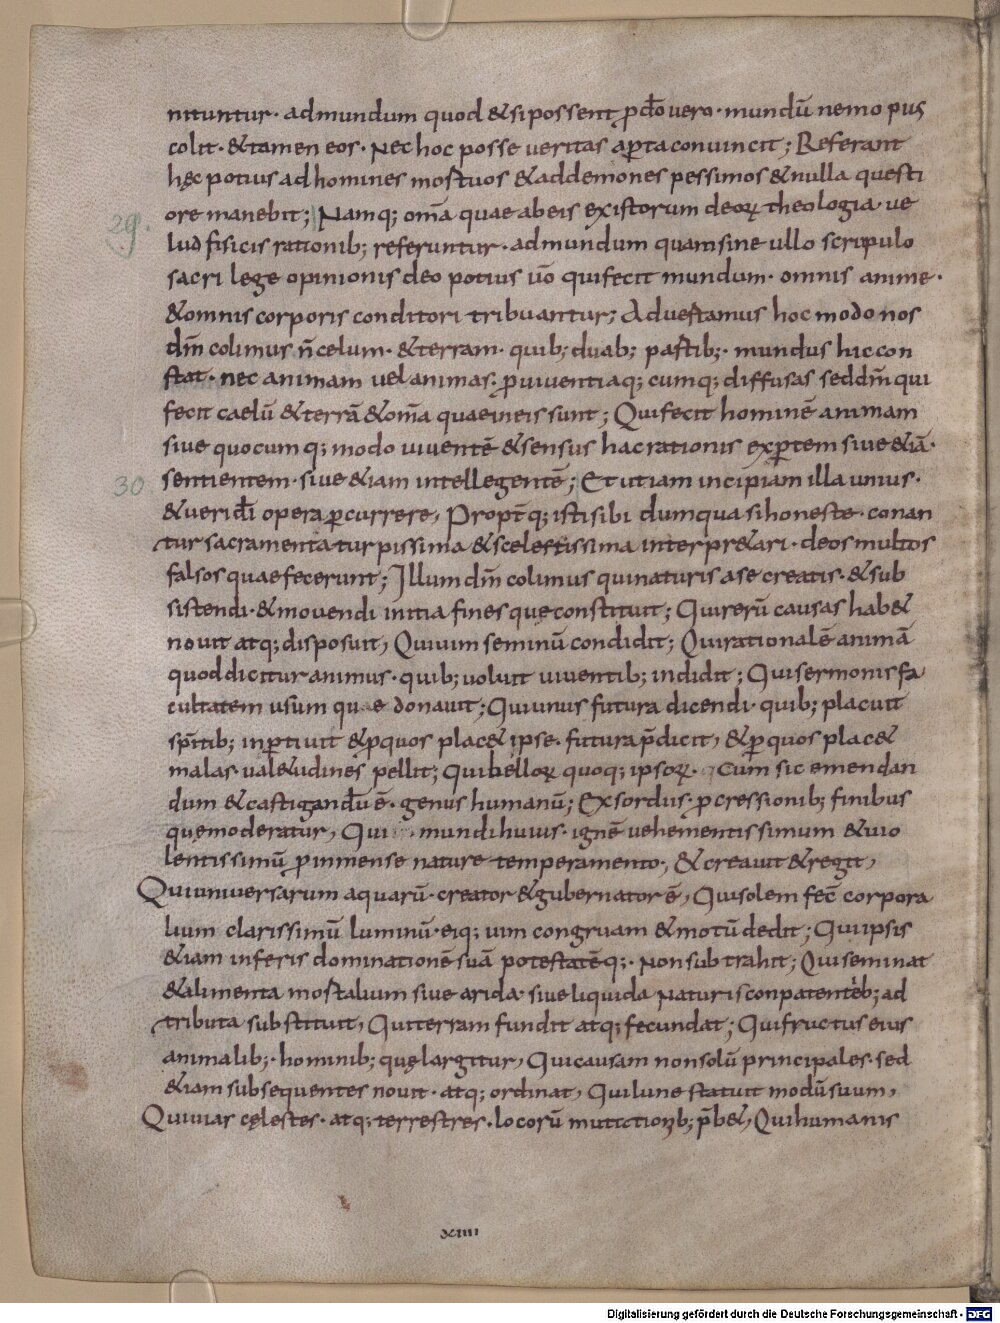 nituntur· ad mundum quod & si possent p̱ dō vero· mundū nemo pius
colit· & tamen eos· Nec hoc posse veritas aꝑta convincit; Referant
hęc potius ad homines mortuos & ad demones pessimos & nulla questi
29. ore manebit; Namq; om̄a quae ab eis ex istorum deoꝝ theologia· ve
lud fisicis rationib; referuntur· ad mundum quam sine ullo scrupulo
sacri lege opinionis deo potius ūo qui fecit mundum· omnis anime·
& omnis corporis conditori tribuantur; Advertamus hoc modo nos
dm̄ colimus n̄ celum· & terram· quib; duab; partib;· mundus hic con
stat· nec animam vel animas· ꝑ viventia q; cumq; diffusas sed dm̄ qui
fecit caelū & terrā & om̄a quae in eis sunt; Qui fecit hominē animam
sive quocumq; modo viventē & sensus hac rationis exꝑtem sive &iā·
30 sentientem· sive &iam intellegentē; Et ut iam incipiam illa unius·
& veri dī opera ꝑcurrere, Propt̄ q; isti sibi dum quasi honeste· conan
tur sacramenta turpissima & scelestissima interpr&ari· deos multos
falsosquae fecerunt; Illum dm̄ colimus qui naturis a se creatis· & sub
sistendi· & movendi initia finesquę constituit; Qui rerū causas hab&
novit atq; disposuit, Qui vim seminū condidit; Qui rationalē animā
quod dicitur animus· quib; voluit viventib; indidit; Qui sermonis fa
cultatem usum quae donavit; Qui unus futura dicendi· quib; placuit
spīrtib; inꝑtivit & ꝑ quos plac& ipse· futura p̄dicit, & ꝑ quos plac&
malas· val&udines pellit; Qui belloꝝ quoq; ipsoꝝ· Cum sic emendan
dum & castigandū ē· genus humanū; Exsordiis· ꝓcressionib; finibus
quę moderatur, Qui mundi huius· ignē vehementissimum & vio
lentissimū ꝓ inmense nature temperamento, & creavit & regit,
Qui universarum aquarū· creator & gubernator ē, Qui solem fec̄ corpora
lium clarissimū luminū· eiq; vim congruam & motū dedit; Qui ipsis
&iam inferis dominationē suā potestatēq;· Non subtrahit; Qui seminat
& alimenta mortalium sive arida· sive liquida Naturis conpatentib; ad
tributa substituit, Qui terram fundit atq; fecundat; Qui fructus eius
animalib;· hominib; quę largitur, Qui causam non solū principales· sed
&iam subsequentes novit· atq; ordinat, Qui lune statuit modū suum,
Qui vias cęlestes· atq; terrestres· locorū mutictionib; p̄b&, Qui humanis
xiiii
Digitalisierung gefördert durch die Deutsche Forschungsgemeinschaft - DFG